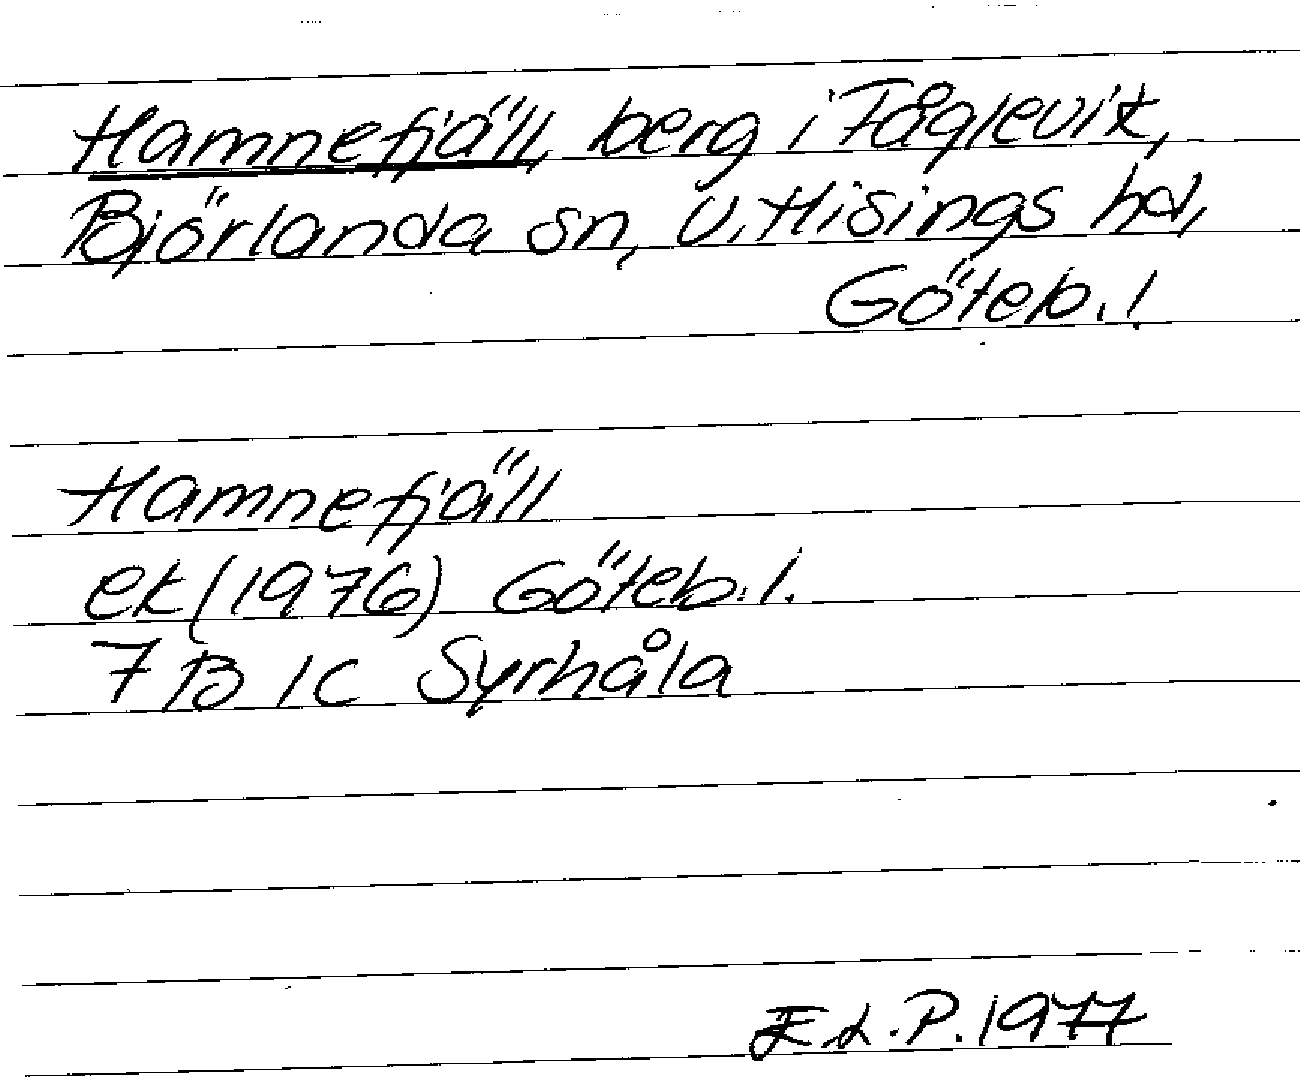 Hamnefjäll, berg i Fåglevik,
Björlanda sn, V. Hisings hd,
Göteb. l
Hamnefjäll
ek (1976) Göteb. l.
7 B 1c Syrhåla
E L. P. 1977